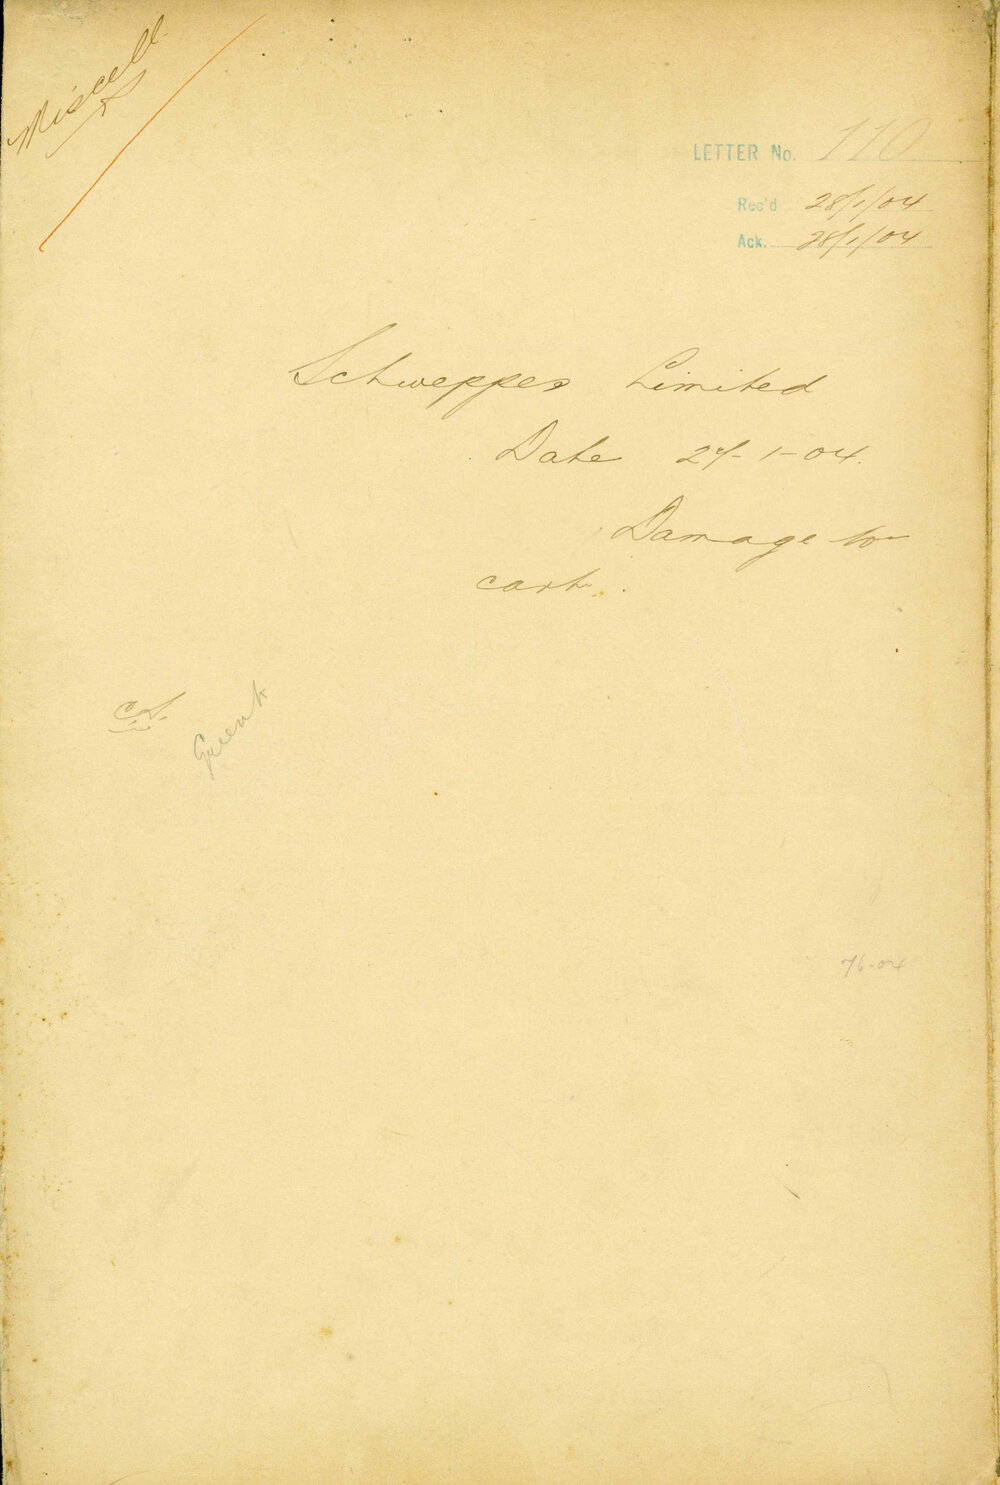 Miscell.
S
LETTER No. 110
Rec'd 28/1/04
Ack. 28/1/04
Schweppes Limited
Date 27-1-04.
Damage to
cart.
76-04